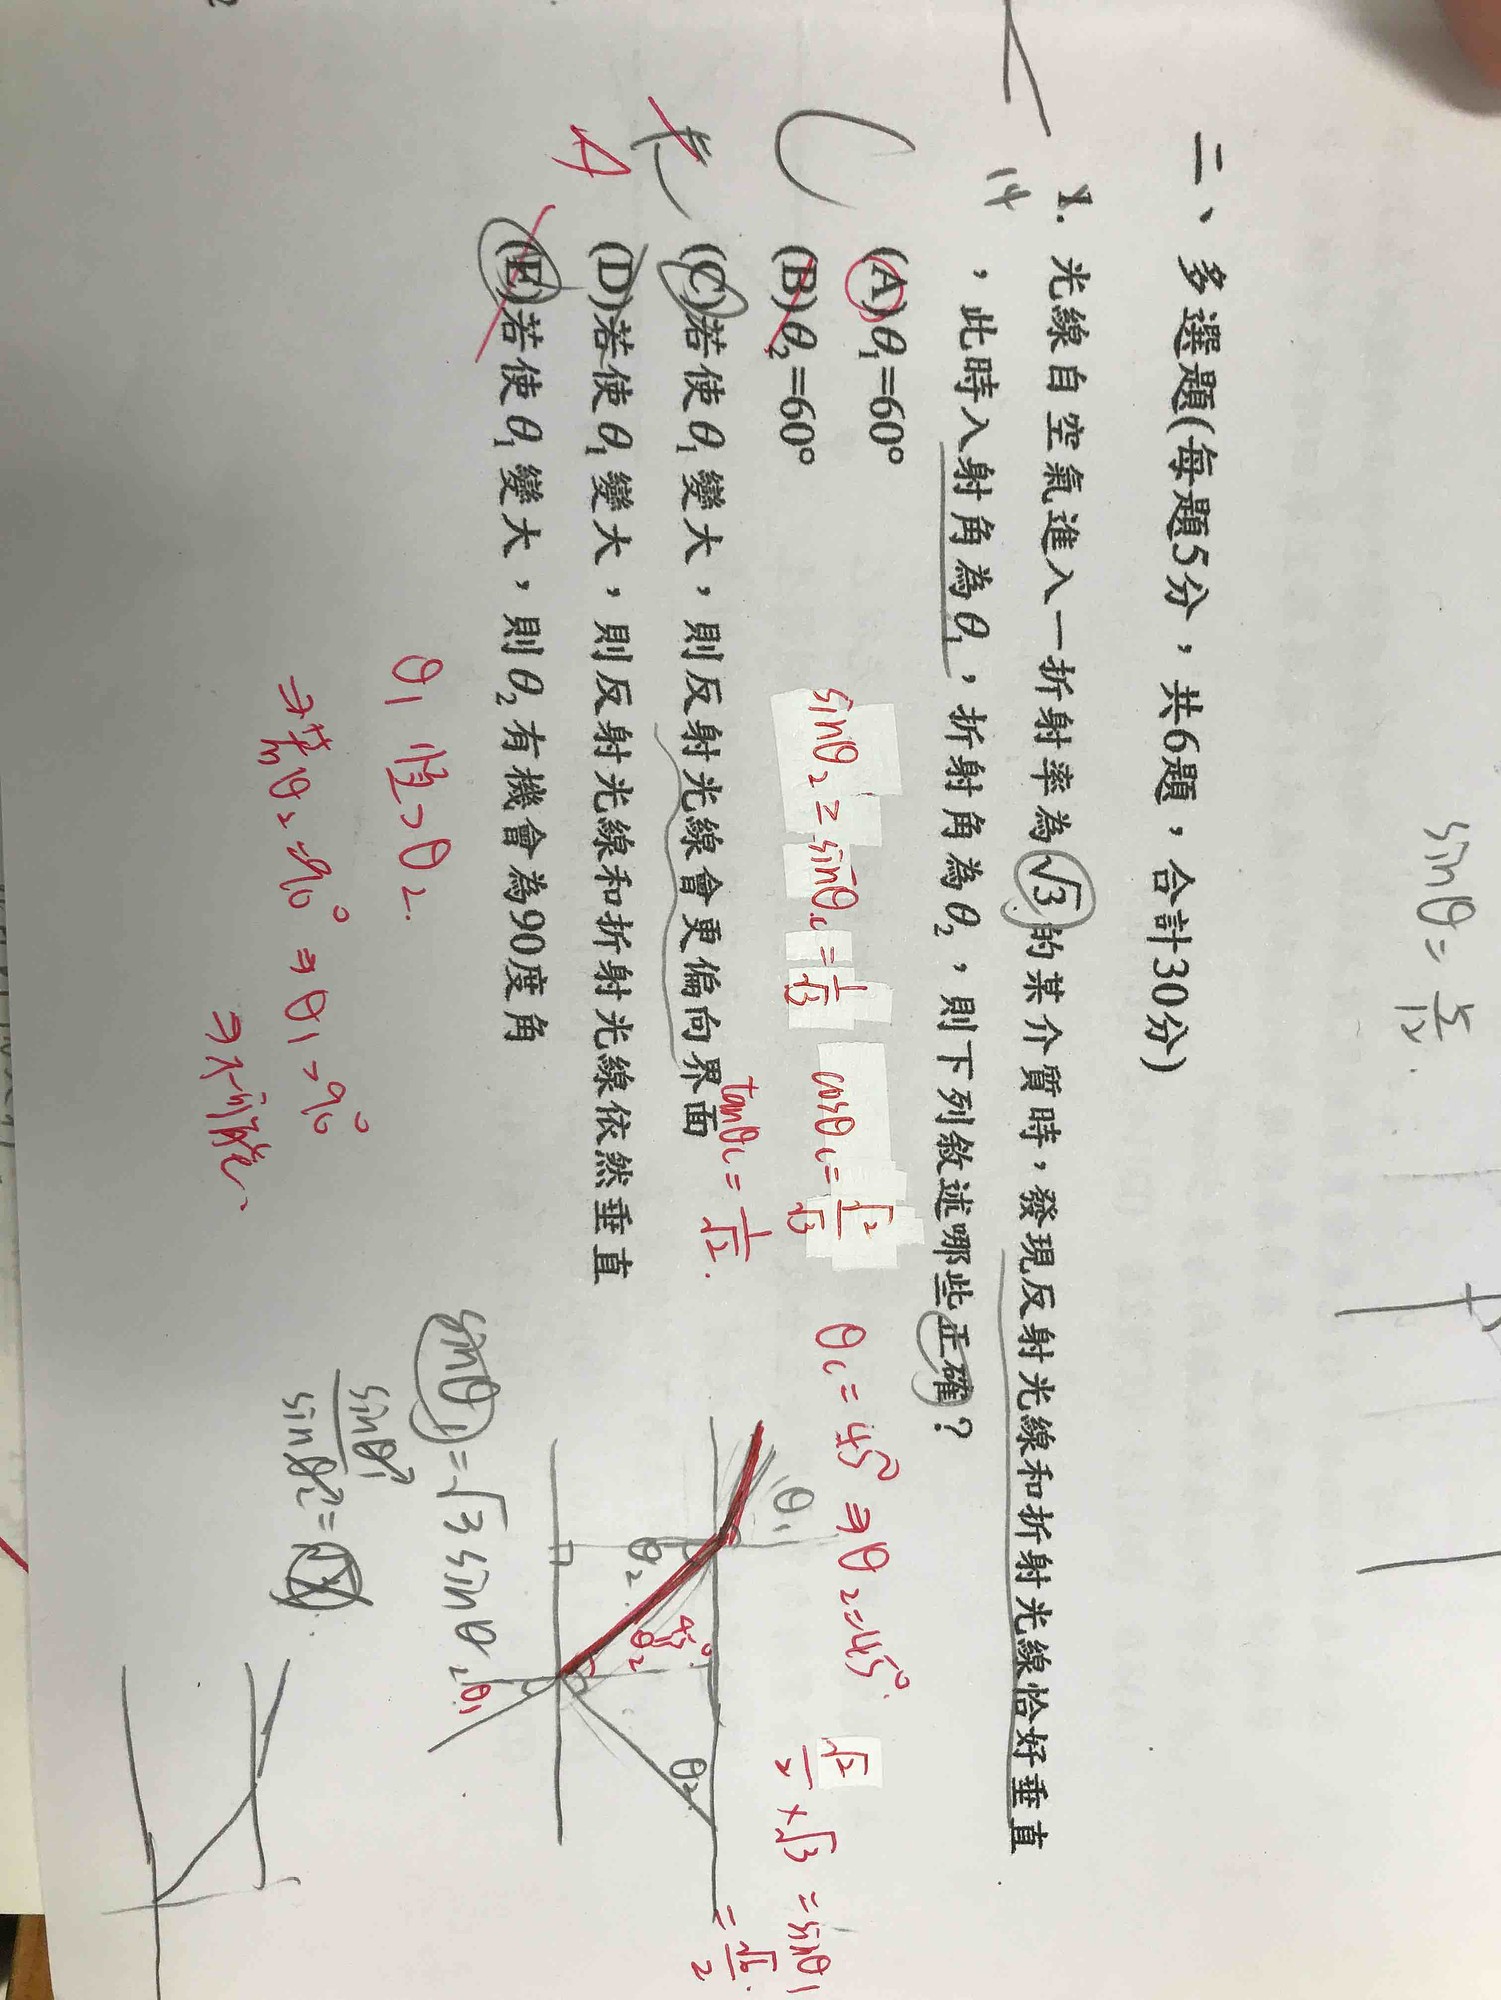 sinθ = 5/12.
二、多選題(每題5分，共6題，合計30分)
1. 光線自空氣進入一折射率為√3的某介質時，發現反射光線和折射光線恰好垂直
14
，此時入射角為θ₁，折射角為θ₂，則下列敘述哪些正確？
(A)θ₁=60°
(B)θ₂=60°
(C)若使θ₁變大，則反射光線會更偏向界面
(D)若使θ₁變大，則反射光線和折射光線依然垂直
(E)若使θ₁變大，則θ₂有機會為90度角
A
sinθ₂ ≥ sinθc = 1/√3
cosθc = √2/√3
tanθc = 1/√2.
θc = 45° ⇒ θ₂ = 45°.
√2/2 × √3 = sinθ₁
= √6/2.
θ₁ 恆 > θ₂.
⇒ 若θ₂ = 90° ⇒ θ₁ > 90°
⇒ 不可能、
sinθ₁ = √3 sinθ₂
sinθ₁/sinθ₂ =
θ₁
θ₂
45°
θ₂
θ₂
θ₁